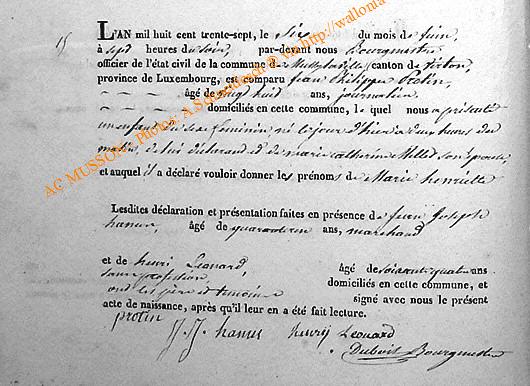 15
L'AN mil huit cent trente-sept, le six du mois de juin,
à sept heures du soir, par-devant nous Bourgmestre
officier de l'état civil de la commune de canton de
province de Luxembourg, est comparu jean Philippe Protin,
âgé de vingt huit ans, journalier,
domiciliés en cette commune, le quel nous a présenté
un enfant du sexe feminin, né le jour d'hier a deux heures du
matin, de lui déclarant et de marie catherine Millet son épouse
et auquel il a déclaré vouloir donner les prénoms de Marie henriette
Lesdites déclaration et présentation faites en présence de jean Joseph
hanus, âgé de ans, marchand
et de henri Leonard, âgé de soixante quatre ans
sans profession domiciliés en cette commune, et
ont les père et temoins signé avec nous le présent
acte de naissance, après qu'il leur en a été fait lecture.
protin
J. J. hanus henrij Leonard
Dubois Bourgmestre
AC MUSSON, Photos: A. via http://wallonia